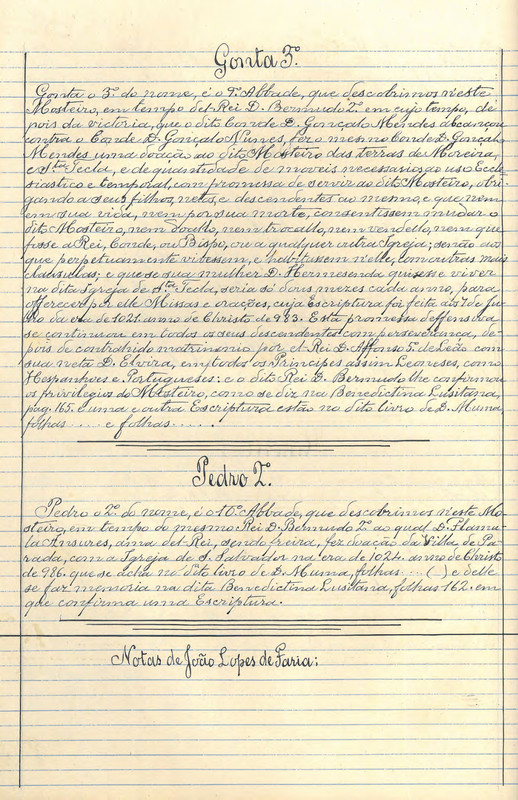 Gonta 3º.
Gonta o 3º. do nome, é o 9º. Abbade, que descobrimos n'este
Mosteiro, em tempo del-Rei D. Bermudo 2º. em cujo tempo, de-
pois da victoria, que o dito Conde D. Gonçalo Mendes alcançou
contra o Conde D. Gonçalo Nunes, fez o mesmo Conde D. Gonçalo
Mendes uma doação ao dito Mosteiro das terras de Moreira,
e Stª. Tecla, e de quantidade de moveis necessarios ao uso Eccle-
siastico e temporal, com promessa de servir ao dito Mosteiro, obri-
gando a seus filhos, netos, e descendentes ao mesmo, e que nem
em sua vida, nem por sua morte, consentissem mudar o
dito Mosteiro, nem doallo, nem trocallo, nem vendello, nem que
fosse a Rei, Conde, ou Bispo, ou a qualquer outra Igreja; senão aos
que perpetuamente vivessem, e habitassem n'elle, com outras mais
clausulas; e que se sua mulher D. Hermesenda quizesse viver
na dita Igreja de Stª. Tecla, seria só dous mezes cada anno, para
offerecer por elle Missas e orações, cuja Escriptura foi feita aos 7 de
da era de 1021. anno de Christo de 983. Esta promessa deffensiva
se continuou em todos os seus descendentes com perseverança, de-
pois de contrahido matrimonio por el-Rei D. Affonso 5º. de Leão com
sua neta D. Elvira, em todos os Principes assim Leoneses, como
Hespanhoes e Portugueses: e o dito Rei D. Bermudo lhe confirmou
os privilegios do Mosteiro, como se diz na Benedictina Lusitana,
pag. 165. E uma e outra Escriptura estão no dito livro de D. Muma
folhas ..... e folhas ......
Pedro 2º.
Pedro o 2º. do nome, é o 10º. Abbade, que descobrimos n'este Mos-
teiro, em tempo do mesmo Rei D. Bermudo 2º. ao qual D. Flamu-
la Ansures, ama del-Rei, sendo freira, fez doação da Villa de Pa-
rada, com a Igreja de S. Salvador na era de 1024. anno de Christo
de 986. que se acha no dito livro de D. Muma, folhas ... ( ) e delle
se faz memoria na dita Benedictina Lusitana, folhas 162. em
que confirma uma Escriptura.
Notas de João Lopes de Faria: